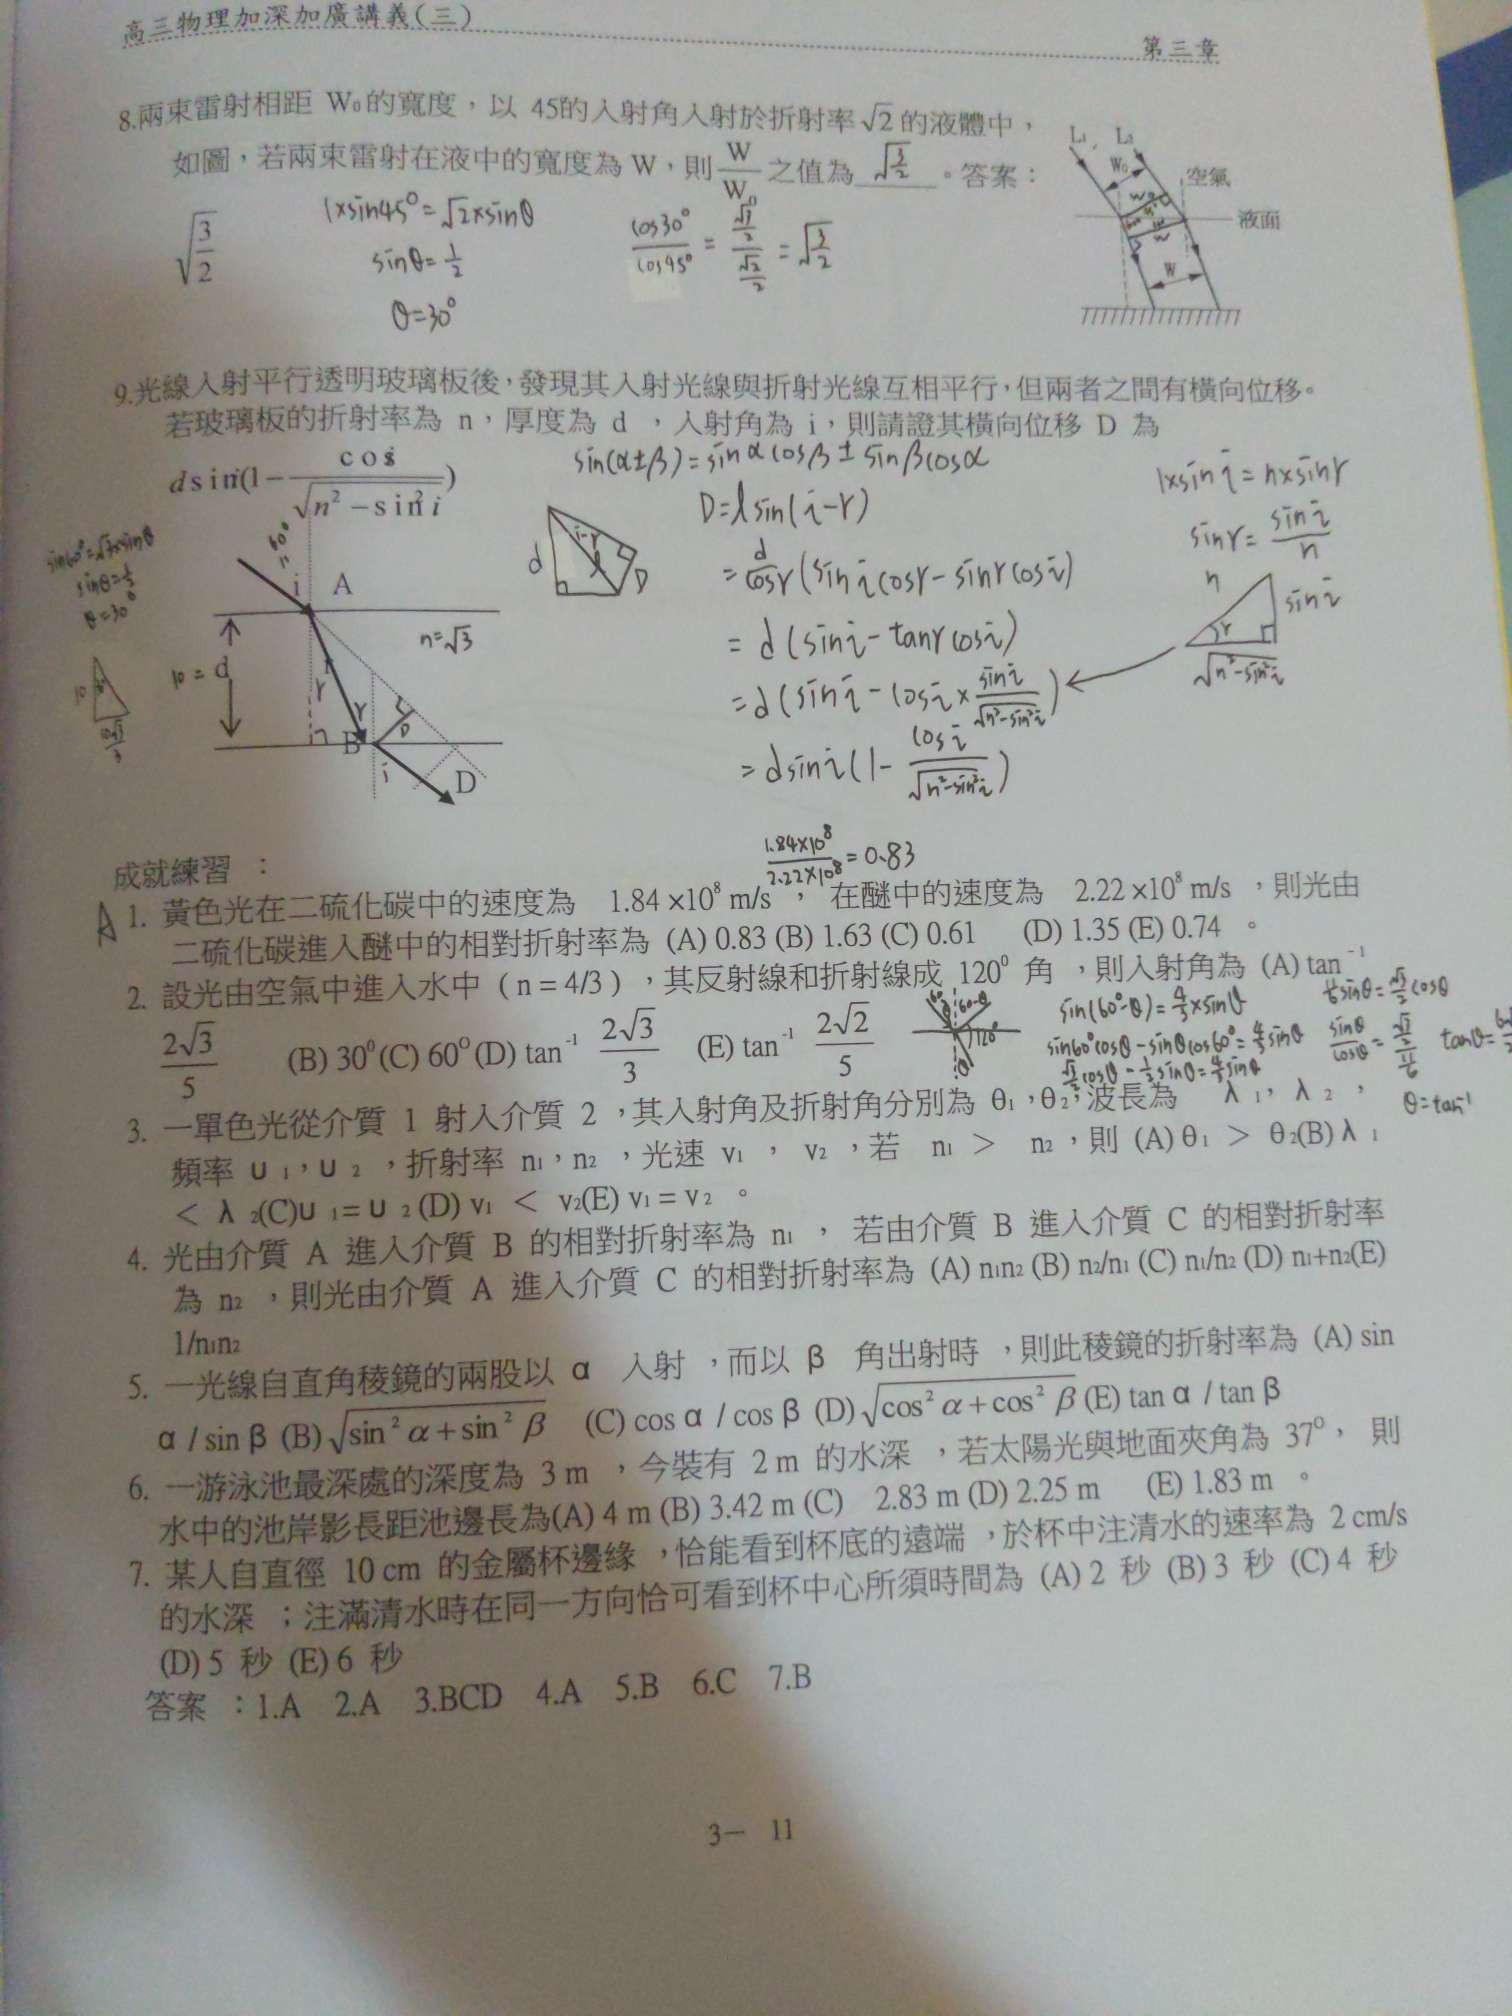 高三物理加深加廣講義(三)
第三章
8.兩束雷射相距 W₀的寬度，以 45的入射角入射於折射率√2的液體中，
如圖，若兩束雷射在液中的寬度為 W，則 W/W₀ 之值為 √(3/2) 。答案：
√(3/2)
1×sin45°=√2×sinθ
sinθ=1/2
θ=30°
cos30°/cos45° = (√3/2)/(√2/2) = √(3/2)
L₁ L₂
W₀
空氣
液面
W
9.光線入射平行透明玻璃板後，發現其入射光線與折射光線互相平行，但兩者之間有橫向位移。
若玻璃板的折射率為 n，厚度為 d ，入射角為 i，則請證其橫向位移 D 為
d sin i(1 − cos i/√(n² − sin² i))
sin(α±β)=sinαcosβ±sinβcosα
D=lsin(i-r)
= d/cosr (sin i cosr - sinr cos i)
= d(sin i - tanr cos i)
= d(sin i - cos i × sin i/√(n²-sin²i))
= dsin i(1- cos i/√(n²-sin²i))
1×sin i = n×sinr
sinr = sin i/n
n
sin i
r
√(n²-sin²i)
d
i-r
D
sin60°=√3×sinθ
sinθ=1/2
θ=30°
60°
i A
n=√3
10 = d
r
r
B
D
i
D
10
成就練習 ：
1.84×10⁸/2.22×10⁸ = 0.83
A 1. 黃色光在二硫化碳中的速度為 1.84 ×10⁸ m/s ， 在醚中的速度為 2.22 ×10⁸ m/s ，則光由
二硫化碳進入醚中的相對折射率為 (A) 0.83 (B) 1.63 (C) 0.61 (D) 1.35 (E) 0.74 。
2. 設光由空氣中進入水中 ( n = 4/3 ) ，其反射線和折射線成 120⁰ 角 ，則入射角為 (A) tan⁻¹
2√3/5 (B) 30⁰ (C) 60⁰ (D) tan⁻¹ 2√3/3 (E) tan⁻¹ 2√2/5
60-θ
120°
θ
sin(60°-θ)=4/3×sinθ
sin60°cosθ-sinθcos60°=4/3sinθ
√3/2cosθ-1/2sinθ=4/3sinθ
θ=tan⁻¹
3. 一單色光從介質 1 射入介質 2 ，其入射角及折射角分別為 θ₁，θ₂，波長為 λ ₁， λ ₂ ，
頻率 υ ₁，υ ₂ ，折射率 n₁，n₂ ，光速 v₁ ， v₂ ，若 n₁ > n₂ ，則 (A) θ₁ > θ₂(B) λ ₁
< λ ₂(C)υ ₁= υ ₂ (D) v₁ < v₂(E) v₁ = v₂ 。
4. 光由介質 A 進入介質 B 的相對折射率為 n₁ ， 若由介質 B 進入介質 C 的相對折射率
為 n₂ ，則光由介質 A 進入介質 C 的相對折射率為 (A) n₁n₂ (B) n₂/n₁ (C) n₁/n₂ (D) n₁+n₂(E)
1/n₁n₂
5. 一光線自直角稜鏡的兩股以 α 入射 ，而以 β 角出射時 ，則此稜鏡的折射率為 (A) sin
α / sin β (B) √(sin² α + sin² β) (C) cos α / cos β (D) √(cos² α + cos² β) (E) tan α / tan β
6. 一游泳池最深處的深度為 3 m ，今裝有 2 m 的水深 ，若太陽光與地面夾角為 37⁰， 則
水中的池岸影長距池邊長為(A) 4 m (B) 3.42 m (C) 2.83 m (D) 2.25 m (E) 1.83 m 。
7. 某人自直徑 10 cm 的金屬杯邊緣 ，恰能看到杯底的遠端 ，於杯中注清水的速率為 2 cm/s
的水深 ；注滿清水時在同一方向恰可看到杯中心所須時間為 (A) 2 秒 (B) 3 秒 (C) 4 秒
(D) 5 秒 (E) 6 秒
答案 ：1.A 2.A 3.BCD 4.A 5.B 6.C 7.B
3− 11